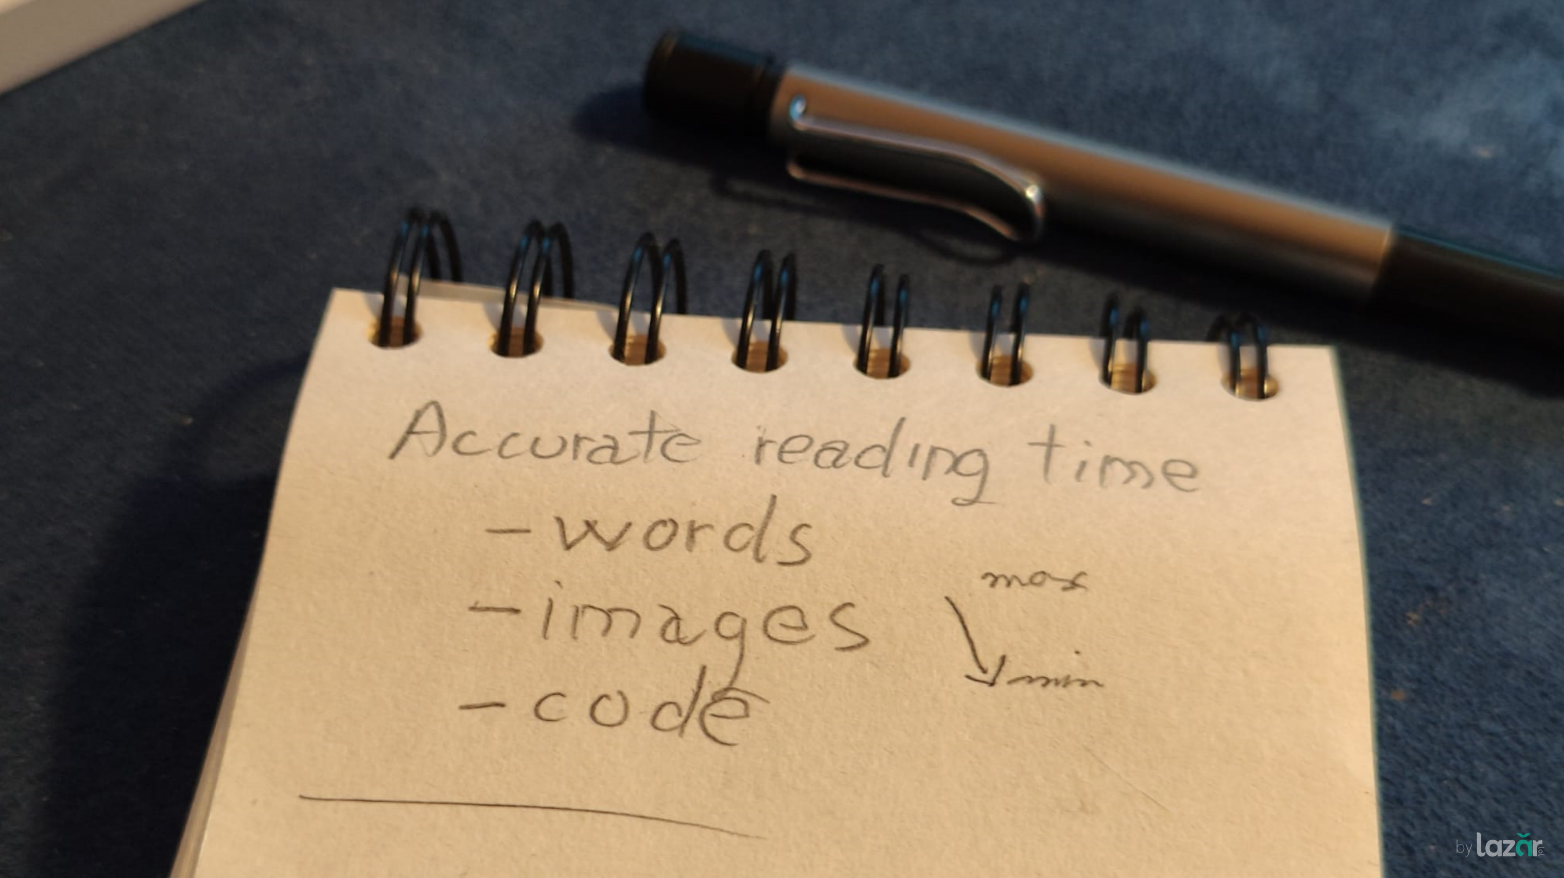 Accurate reading time
- words
- images
max
min
- code
by lazăr